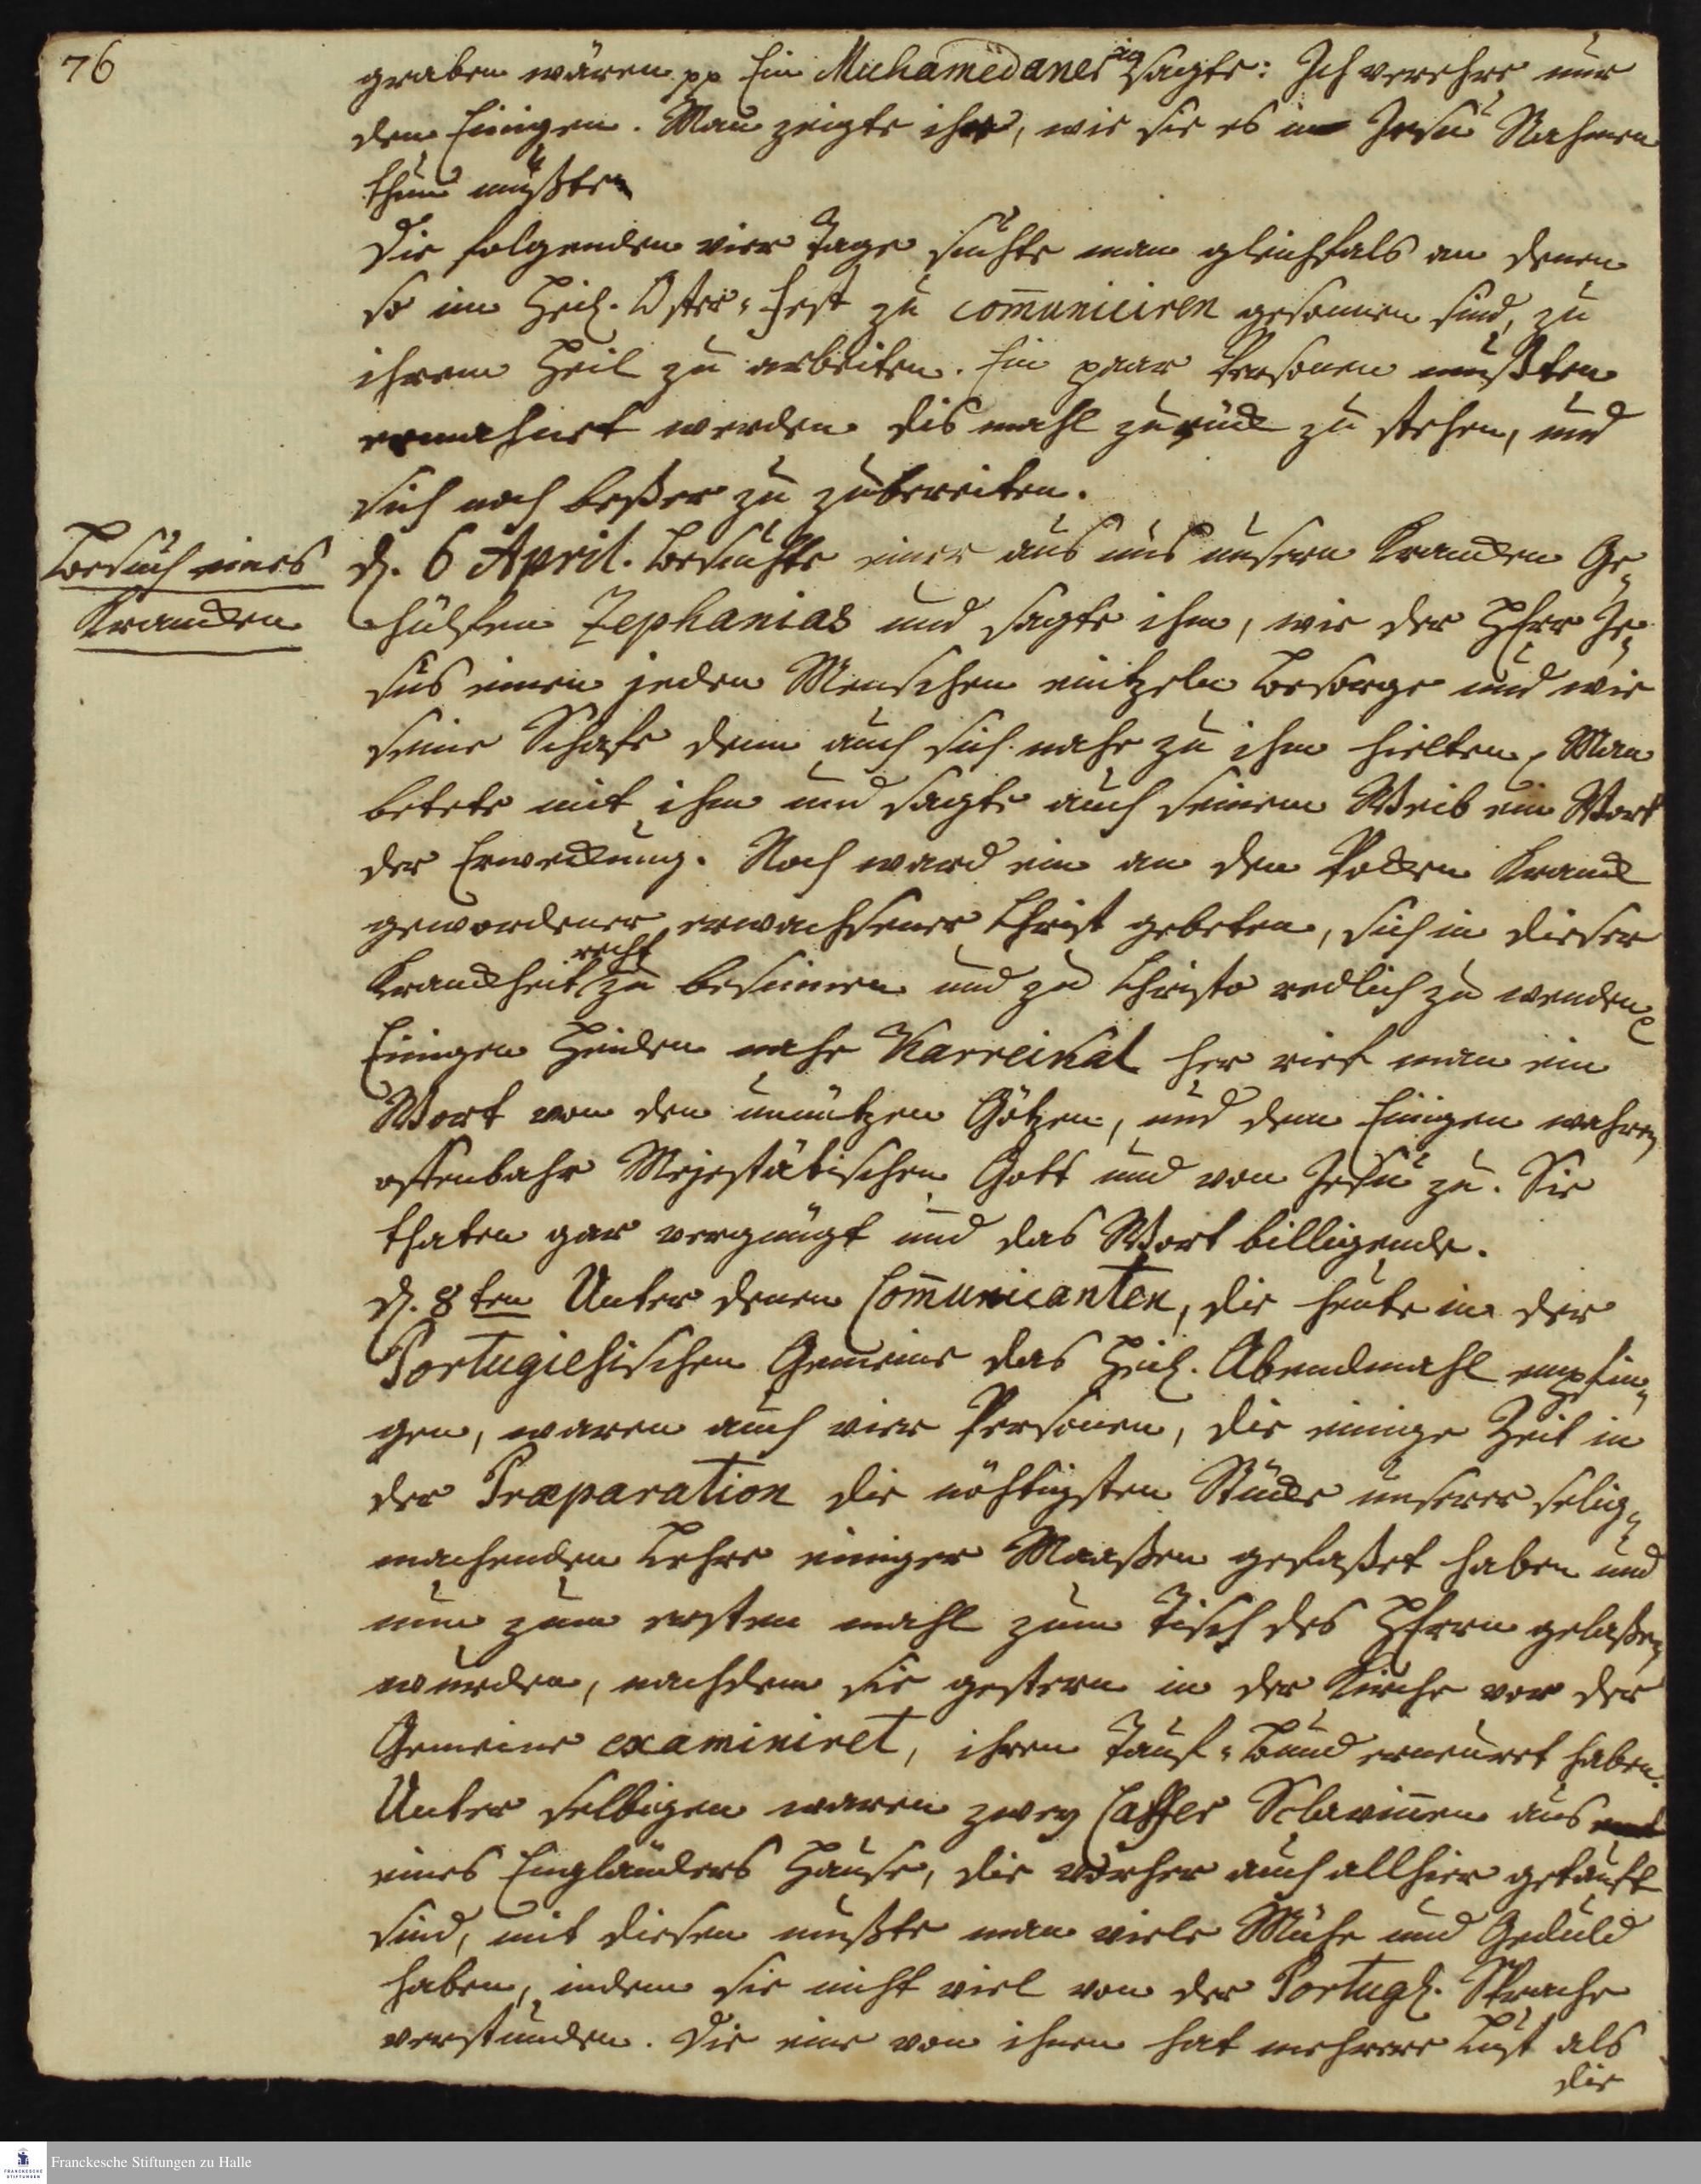 76
graben wären pp Ein Muhamedaner in sagte: Ich verehre nur
den Einigen. Man zeigte ihr, wie sie es in Jesu Nahmen
thun müßte
Die folgenden vier Tage suchte man gleichfals an denen
so im Heil. Oster-Fest zu com̄uniciren gesonnen sind, zu
ihrem Heil zu arbeiten. Ein paar Personen mußten
ermahnet werden dis mahl zurück zu stehen, und
sich noch beßer zu zubereiten.
Besuch eines
Krancken
d. 6 April. Besuchte einer aus uns unsern Krancken Ge-
hülfen Zephanias und sagte ihm, wie der HErr Je-
sus einen jeden Menschen eintzeln besorge und wie
seine Schafe denn auch sich nahe zu ihm hielten, Man
betete mit ihm und sagte auch seinem Weib ein Wort
der Erweckung. Noch ward ein an den Pocken Kranck
gewordener erwachsener Christ gebeten, sich in dieser
Kranckheit recht zu besinnen und zu Christo redlich zu wenden
Einigen Heiden nahe Karreikal her rief man ein
Wort von den unnützen Götzen, und dem Einigen wahren
offenbahr Mejestätischen Gott und von Jesu zu. Sie
thaten gar vergnügt und das Wort billigende.
d. 8ten Unter denen Com̄unicanten, die heute in der
Portugiesischen Gemeine das Heil. Abendmahl empfin-
gen, waren auch vier Personen, die einige Zeit in
der Præparation die nöhtigsten Stücke unserer selig-
machenden Lehre einiger Maaßen gefaßet haben und
nun zum ersten mahl zum Tisch des HErrn gelaßen
wurden, nachdem sie gestern in der Kirche vor der
Gemeine examiniret, ihren Tauf-Bund erneuret haben.
Unter selbigen waren zwey Caffer Sclavinnen aus
eines Engländers Hause, die vorher auch allhier getauft
sind, mit diesen mußte man viele Mühe und Geduld
haben, indem sie nicht viel von der Portug. Sprache
verstunden. Die eine von ihnen hat mehrere Lust als
die
Franckesche Stiftungen zu Halle